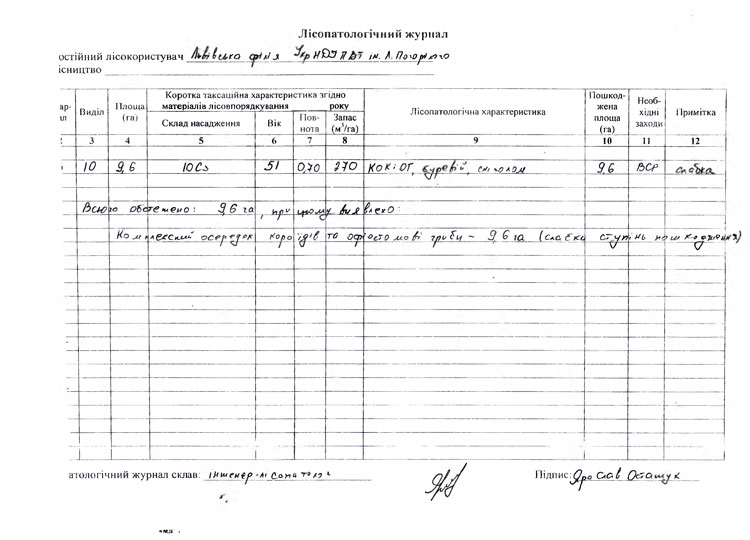 Лісопатологічний журнал
остійний лісокористувач Львівська філія УкрНДІПВТ ім. Л. Погорілого
ісництво
Виділ Площа (га) Коротка таксаційна характеристика згідно матеріалів лісовпорядкування року Лісопатологічна характеристика Пошкоджена площа (га) Необхідні заходи Примітка
Склад насадження Вік Повнота Запас (м³/га)
3 4 5 6 7 8 9 10 11 12
10 9,6 10Сз 51 0,70 270 КОКіОГ, буревій, сніголом 9,6 ВСР слабка
Всього обстежено: 9,6 га, при цьому виявлено:
Комплексний осередок короїдів та офіостомові гриби – 9,6 га (слабка ступінь пошкодження)
атологічний журнал склав: інженер-лісопатолог
Підпис: Ярослав Осташук